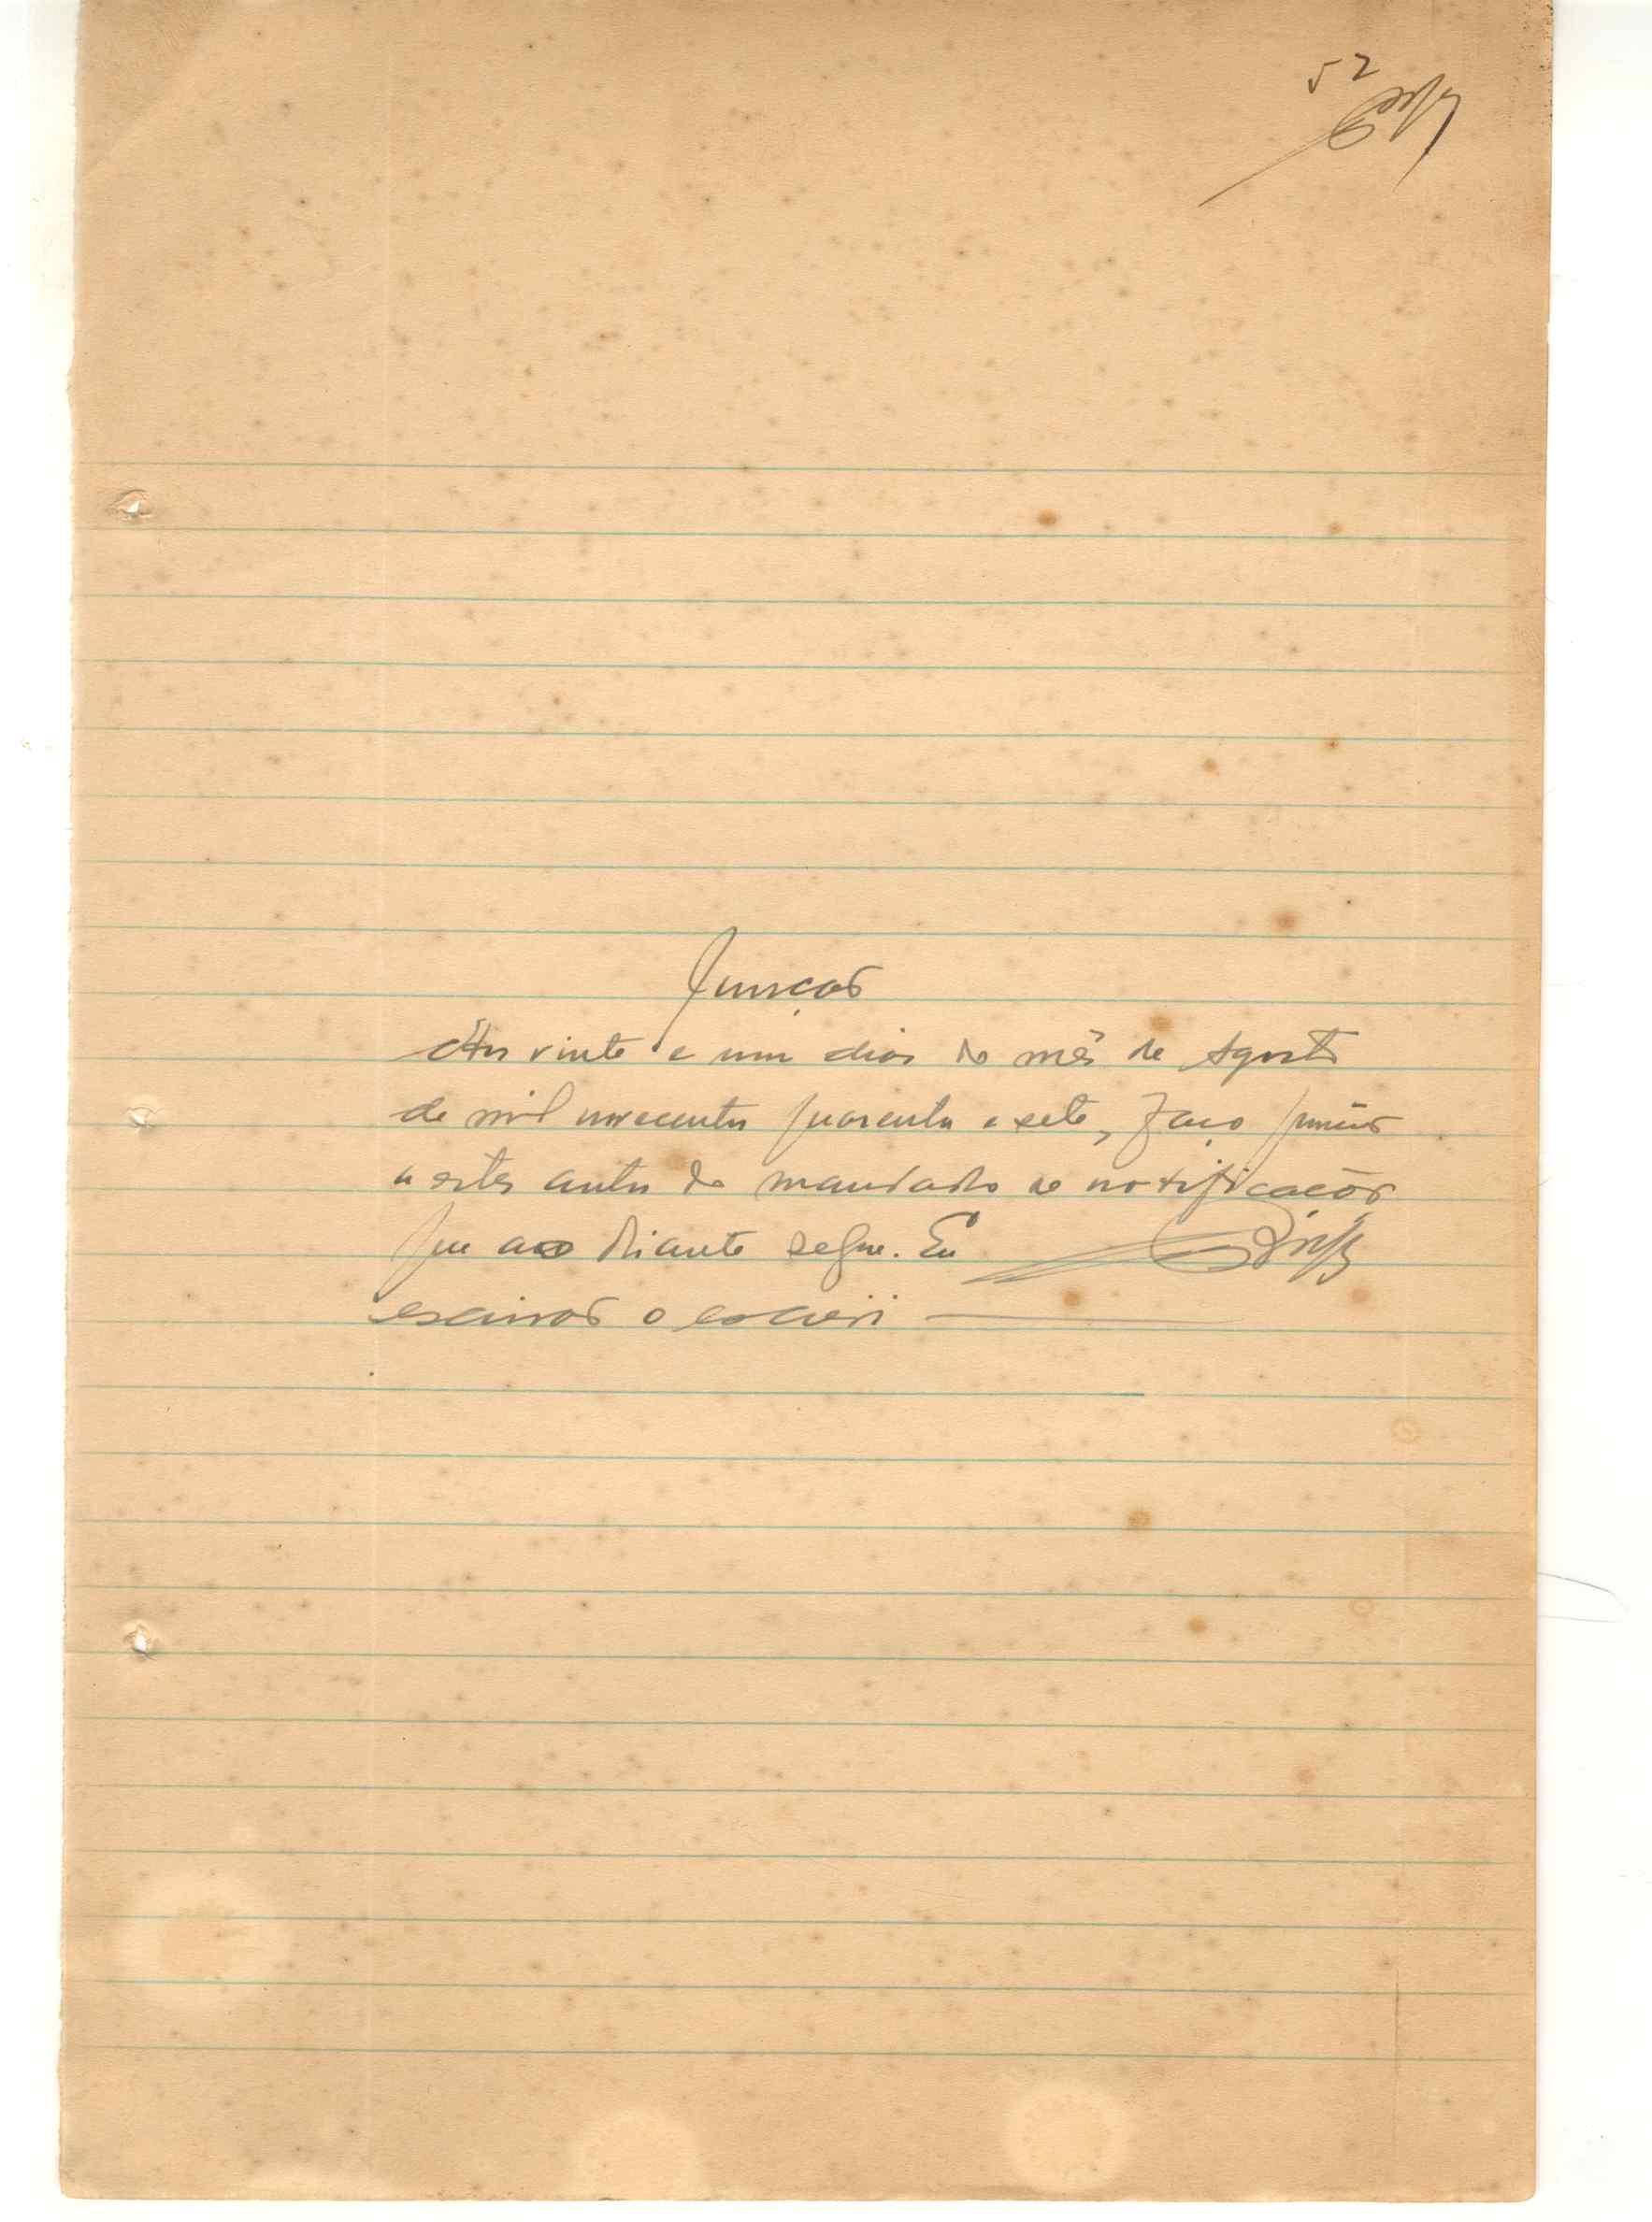 52
Junção
Aos vinte e um dias do mês de Agosto
de mil novecentos quarenta e sete, faço junção
a estes autos do mandado de notificação
que ao diante segue. Eu
escrivão o escrevi